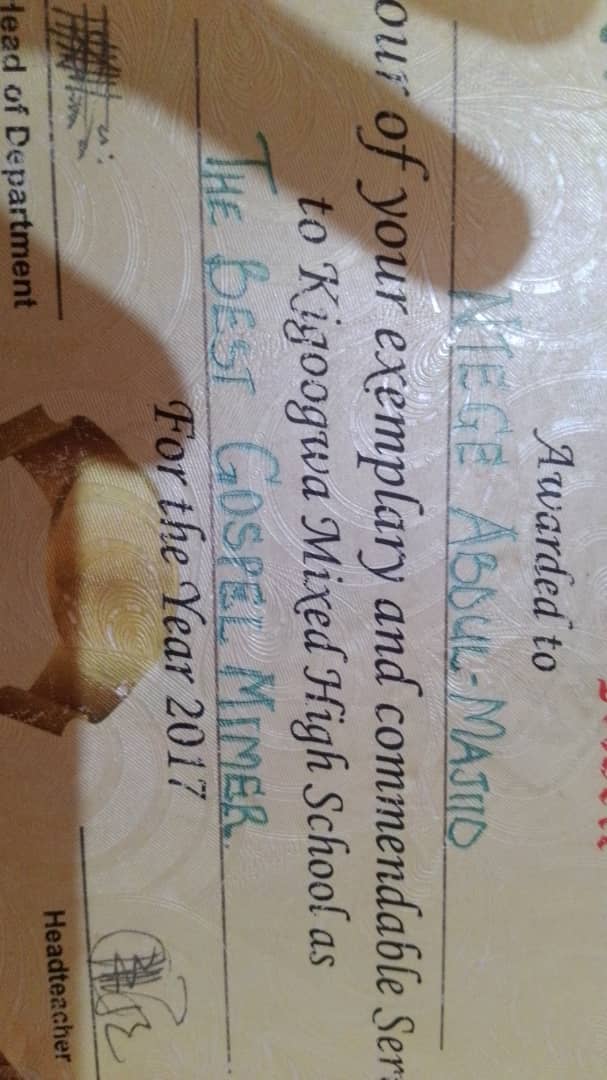 Awarded to
NTEGE ABDUL-MAJIID
our of your exemplary and commendable Ser
to Kigoogwa Mixed High School as
THE BEST GOSPEL MIMER.
For the Year 2017
Head of Department
Headteacher